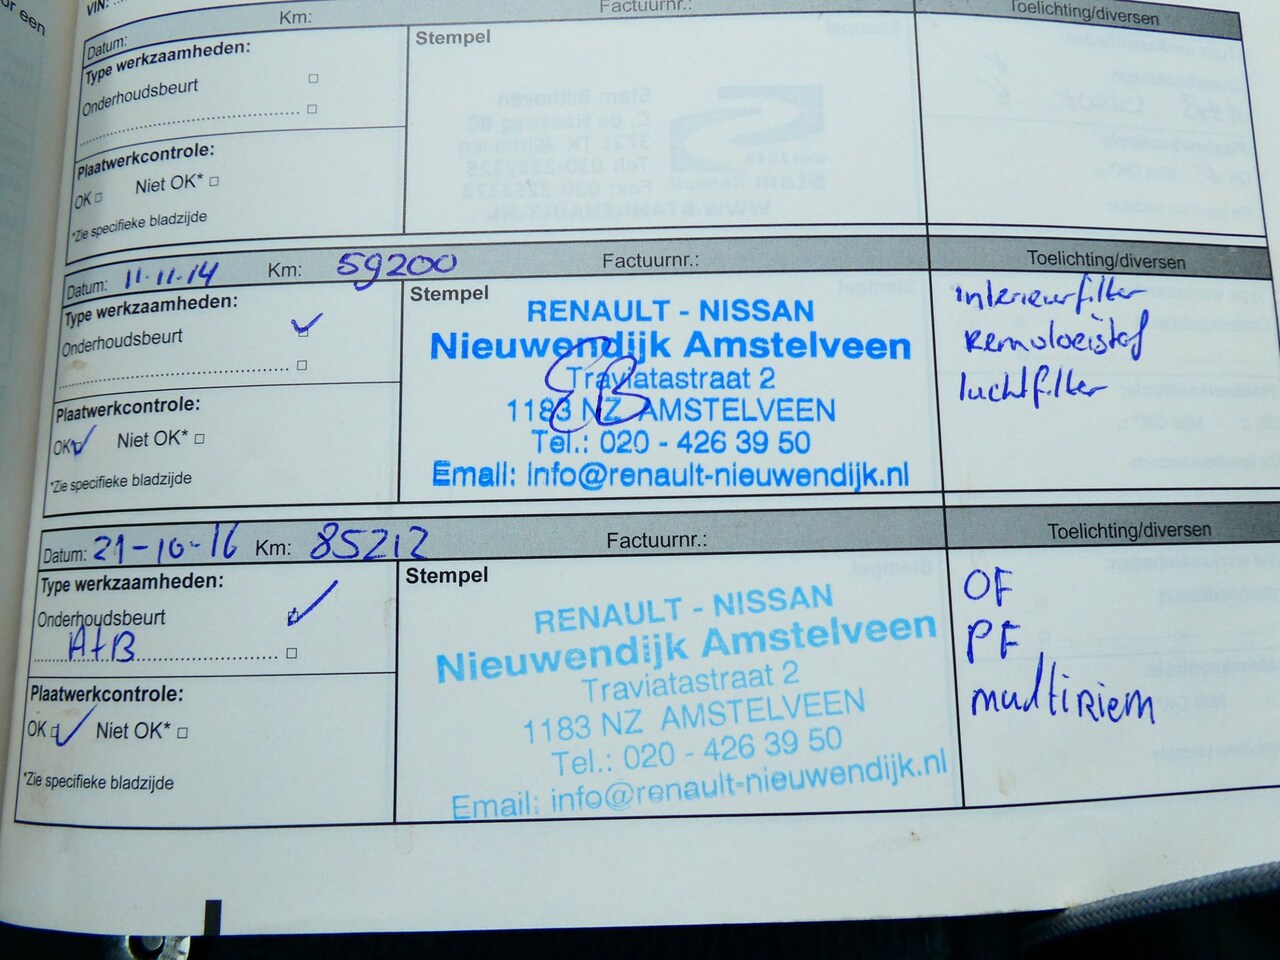 or een
VIN:
Datum: Km: Factuurnr.: Toelichting/diversen
Type werkzaamheden:
Stempel
Onderhoudsbeurt
Plaatwerkcontrole:
OK Niet OK*
*Zie specifieke bladzijde
Datum: 11-11-14 Km: 59200 Factuurnr.: Toelichting/diversen
Type werkzaamheden:
Onderhoudsbeurt
Plaatwerkcontrole:
OK Niet OK*
*Zie specifieke bladzijde
Stempel
RENAULT - NISSAN
Nieuwendijk Amstelveen
Traviatastraat 2
1183 NZ AMSTELVEEN
Tel.: 020 - 426 39 50
Email: info@renault-nieuwendijk.nl
interieurfilter
Remvloeistof
luchtfilter
Datum: 21-10-16 Km: 85212 Factuurnr.: Toelichting/diversen
Type werkzaamheden:
Onderhoudsbeurt
A+B
Plaatwerkcontrole:
OK Niet OK*
*Zie specifieke bladzijde
Stempel
RENAULT - NISSAN
Nieuwendijk Amstelveen
Traviatastraat 2
1183 NZ AMSTELVEEN
Tel.: 020 - 426 39 50
Email: info@renault-nieuwendijk.nl
OF
PF
multiriem